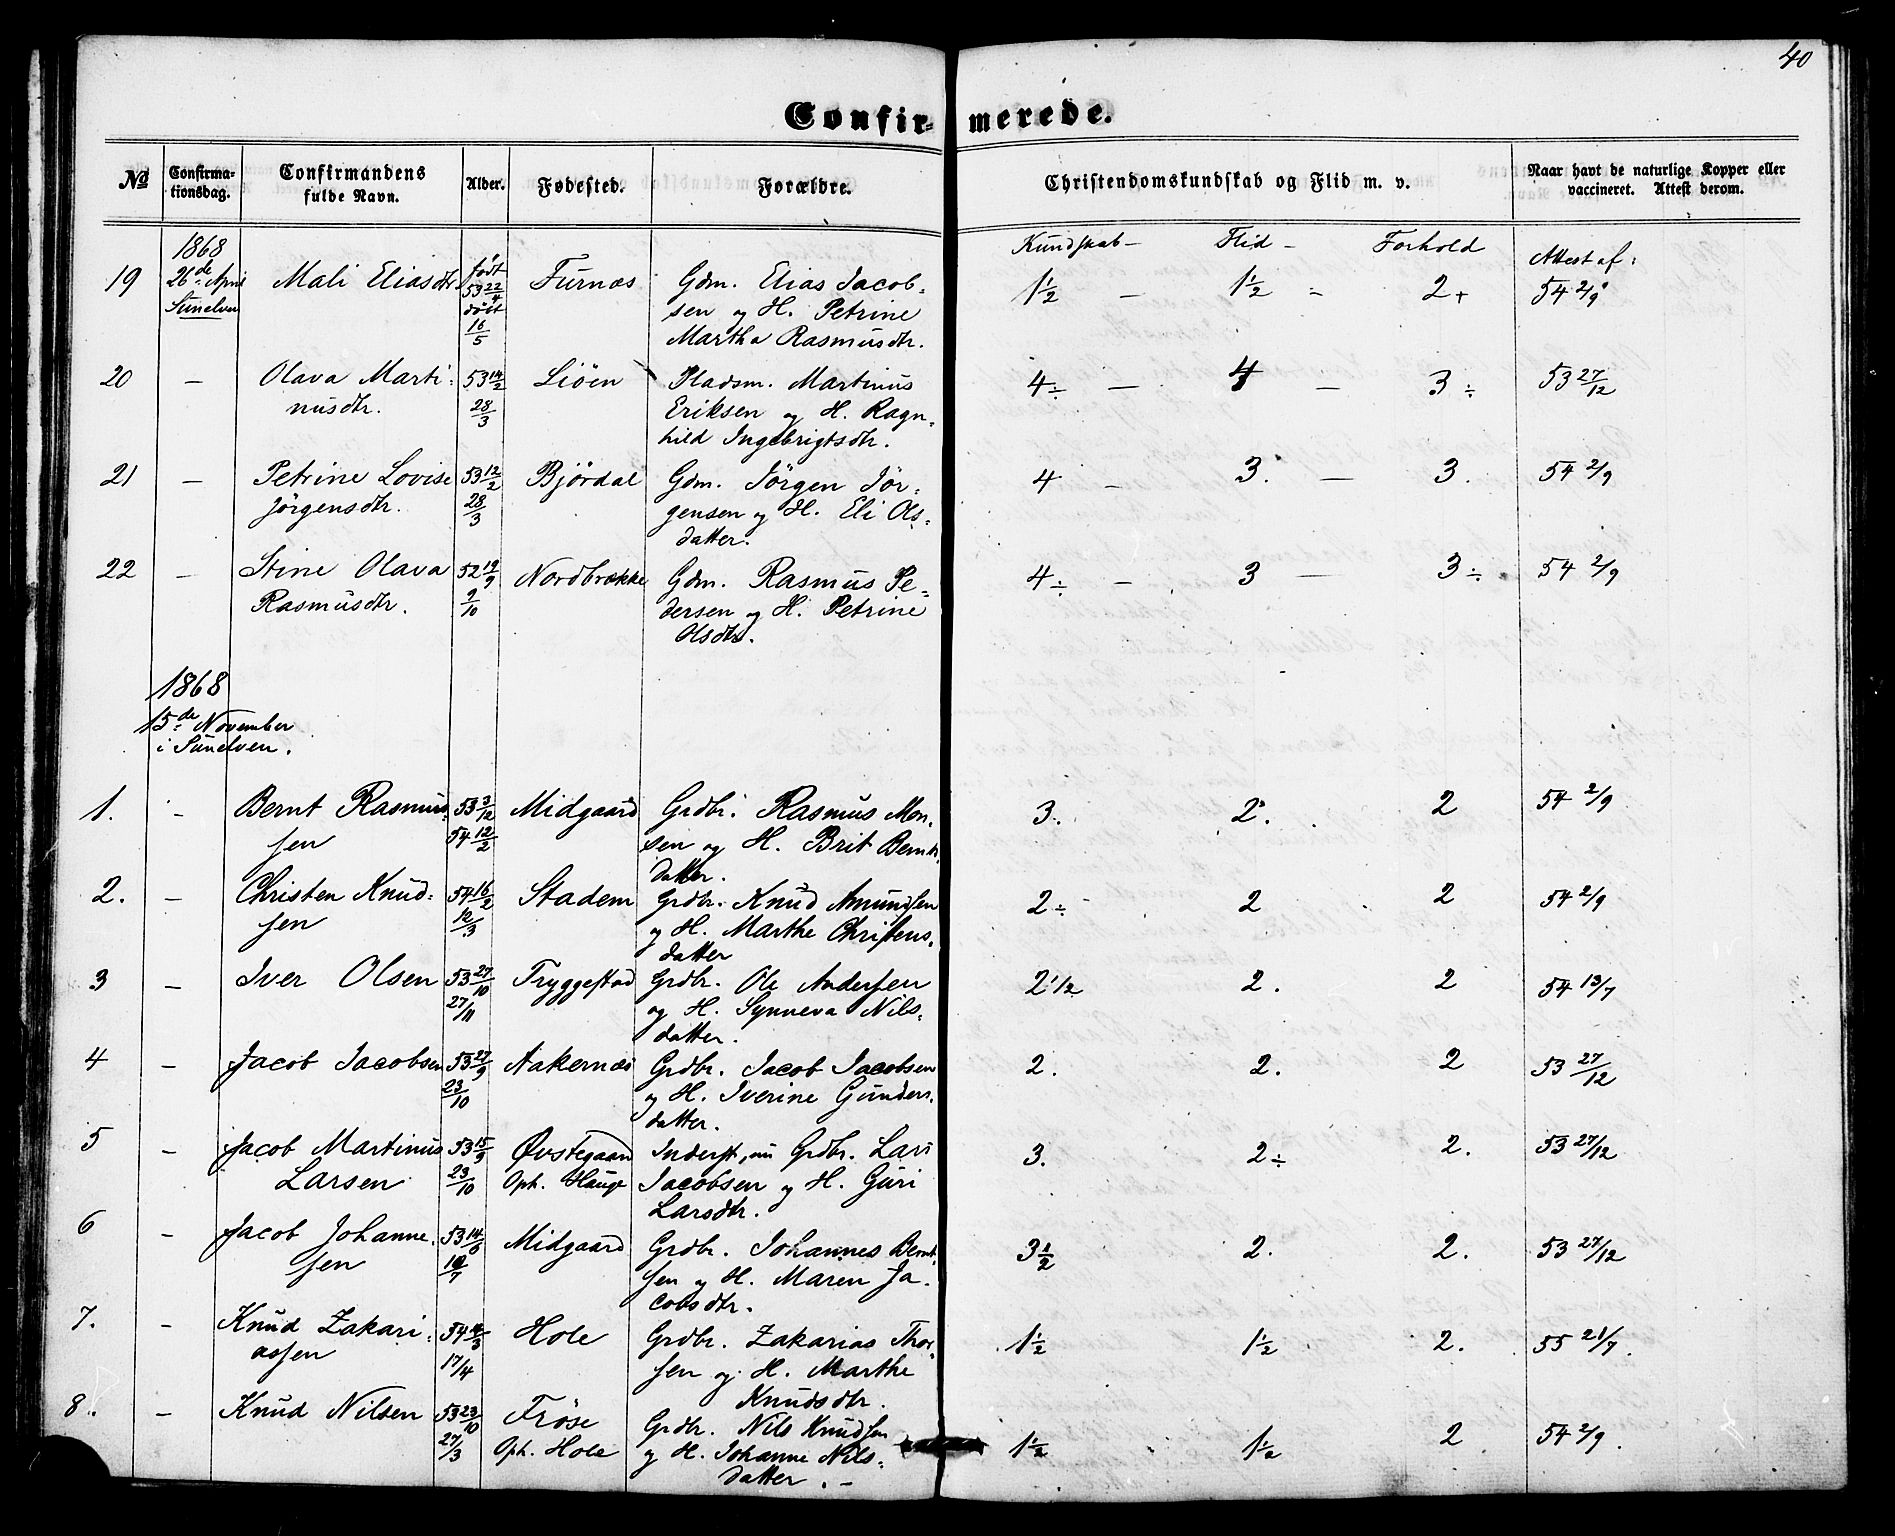 40
Confirmerede.
No Confirmationsdag. Confirmandens fulde Navn. Alder. Fødested. Forældre. Christendomskundskab og Flid m. v. Naar havt de naturlige Kopper eller vaccineret. Attest derom.
1868 Kundskab – Flid – Forhold Attest af:
19 26de April Mali Eliasdtr født 53 22/4 Furnæs Gdm. Elias Jacob- 1½ – 1½ – 2+ 54 2/9
Sunelven døbt 16/5 sen og H. Petrine
Martha Rasmusdtr.
20 – Olava Marti- 53 14/2 Liöen Pladsm. Martinus 4÷ – 4 – 3÷ 53 27/12
nusdtr. 28/3 Eriksen og H. Ragn-
hild Ingebrigtsdtr.
21 – Petrine Lovise 53 12/2 Björdal Gdm. Jörgen Jör- 4 – 3. – 3. 54 2/9
Jörgensdtr. 28/3 gensen og H. Eli Ols-
datter.
22 – Stine Olava 52 19/9 Nordbrække Gdm. Rasmus Pe- 4÷ – 3 – 3÷ 54 2/9
Rasmusdtr. 9/10 dersen og H. Petrine
Olsdtr.
1868
15de November
i Sunelven.
1. – Bernt Rasmus- 53 3/12 Midgaard Grdbr. Rasmus Mon- 3. 2. 2 54 2/9
sen 54 12/2 sen og H. Brit Bernts-
datter.
2. – Christen Knud- 54 16/2 Stadem Grdbr. Knud Amundsen 2÷ 2 2 54 2/9
sen 12/3 og H. Marthe Christens-
datter
3 – Iver Olsen 53 27/10 Tryggestad Grdbr. Ole Andersen 2 1/2 2. 2 54 13/7
27/11 og H. Synneva Nils-
datter.
4 – Jacob Jacobsen 53 27/9 Aakernæs Grdbr. Jacob Jacobsen 2. 2. 2 53 27/12
23/10 og H. Iverine Gunders-
datter.
5 – Jacob Martinus 53 15/9 Øvstegaard Inderst, nu Grdbr. Lars 3. 2÷ 2. 53 27/12
Larsen 23/10 Oph. Hauge Jacobsen og H. Guri
Larsdtr.
6 – Jacob Johanne- 53 14/6 Midgaard Grdbr. Johannes Bernt- 3½ 2. 2. 53 27/12
sen 10/7 sen og H. Maren Ja-
cobsdtr.
7. – Knud Zakari- 54 4/3 Hole Grdbr. Zakarias Thor- 1½ 1½ 2. 55 21/7.
assen 17/4 sen og H. Marthe
Knudsdtr.
8. – Knud Nilsen 53 23/10 Fröse Grdbr. Nils Knudsen 1½ 1½ 2 54 2/9.
27/3 Oph. Hole og H. Johanne Nils-
datter. –